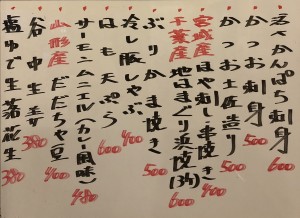 活〆かんぱち刺身 600
かつお刺身 500
かつお土佐造り 500
宮城産 ほや刺し 串焼き 400
千葉産 地はまぐり浜焼(3ヶ) 600
ぶりかま焼き 500
冷し豚しゃぶ 400
はも天ぷら 600
サーモンムニエル(カレー風味) 480
山形産 だだちゃ豆 400
谷中生姜 380
塩ゆで生落花生 380